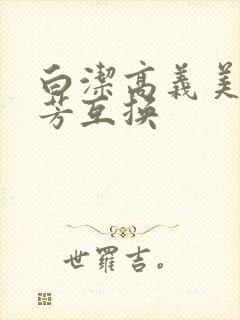 白潔高義美
芳互换
世羅吉。